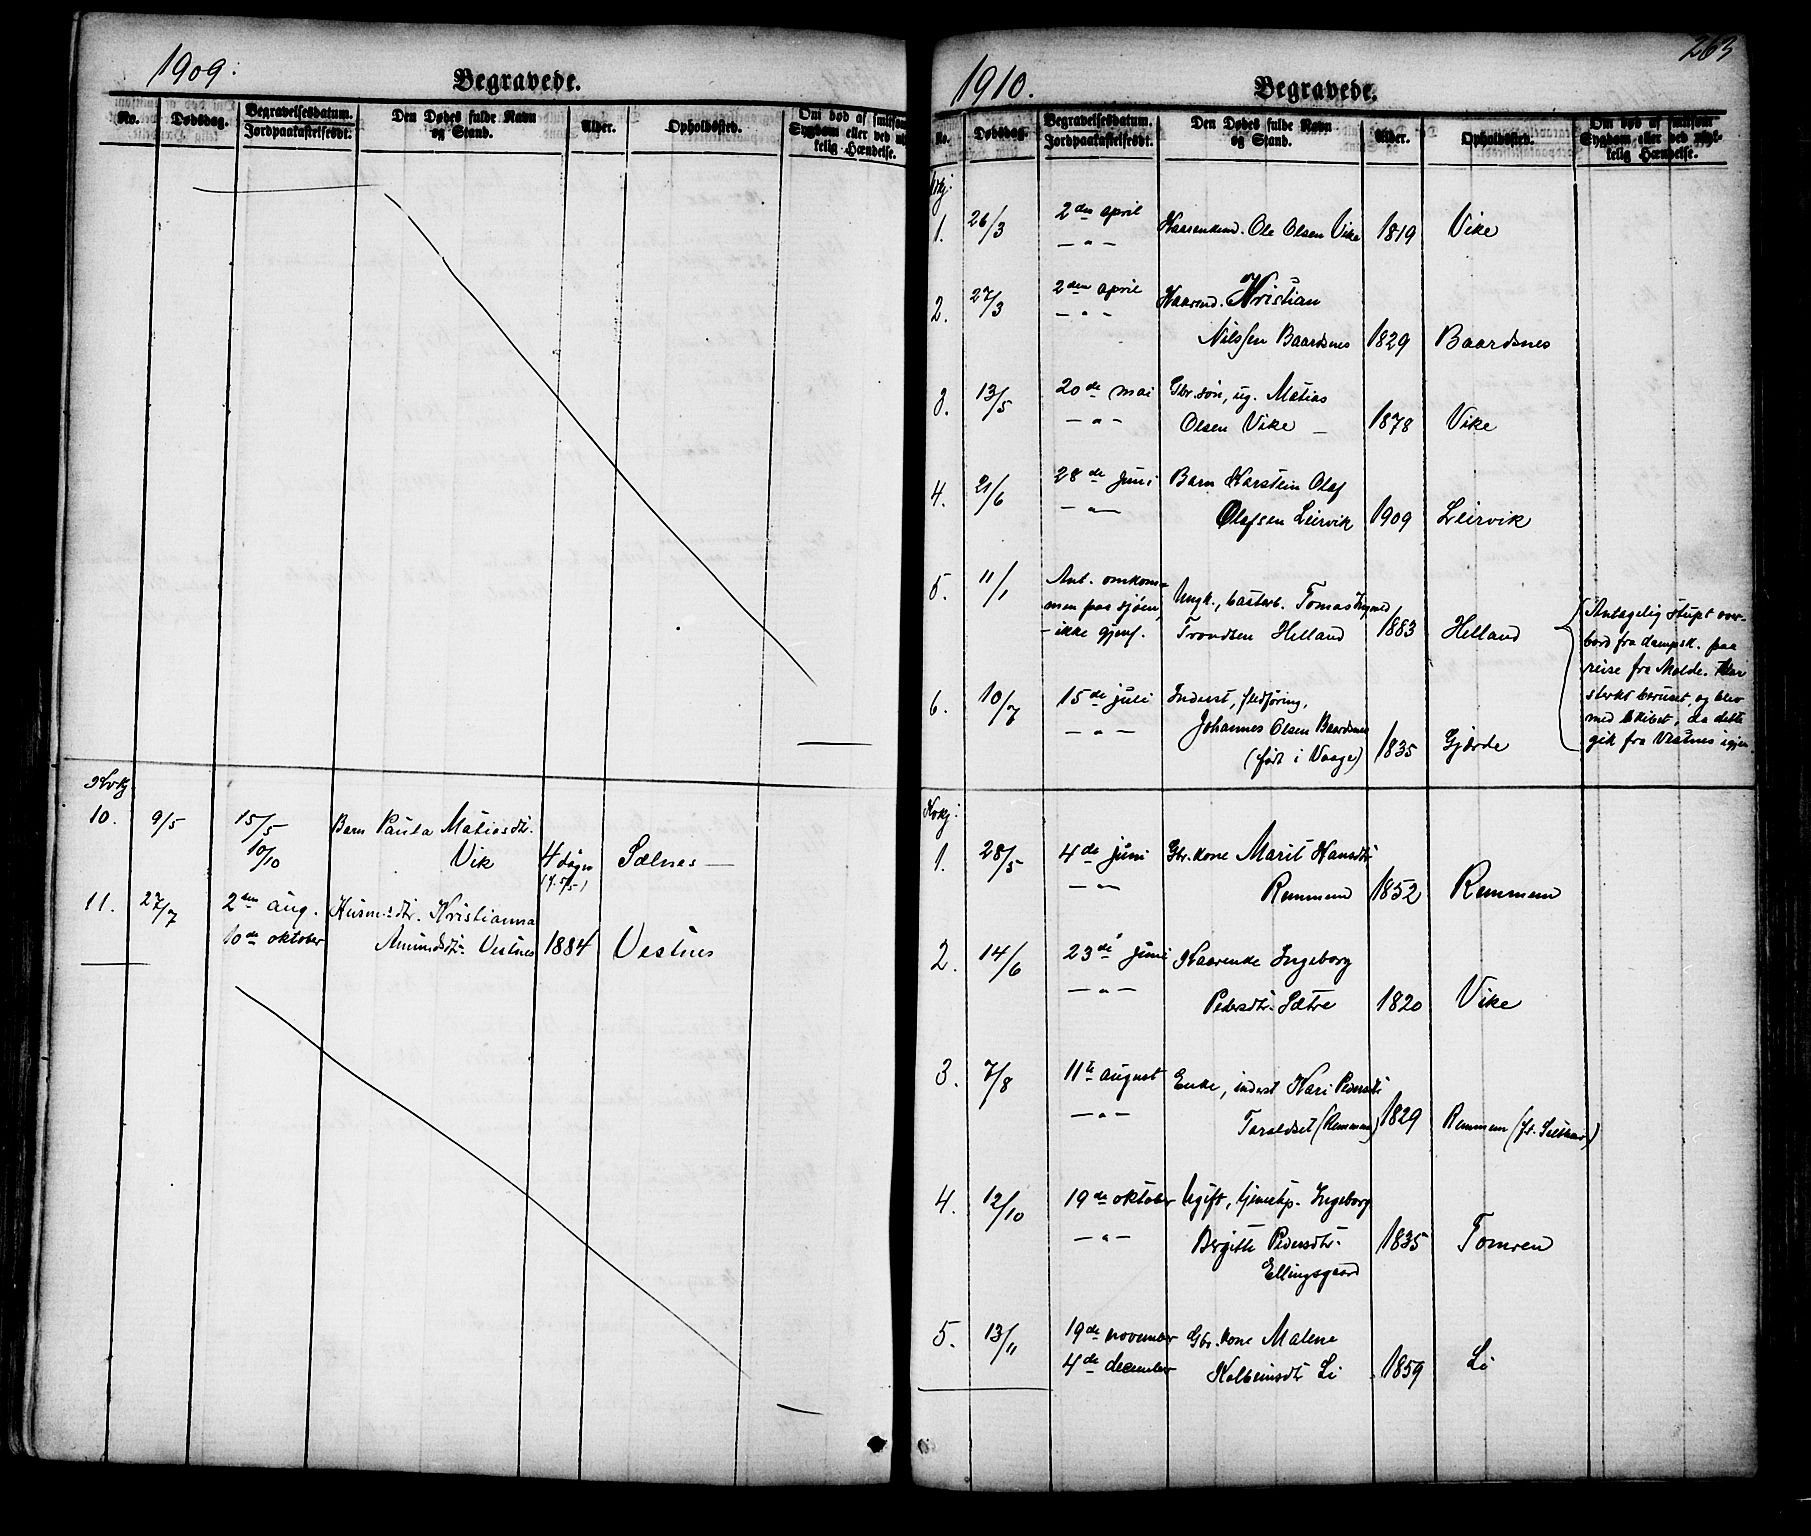 1909.
Begravede.
No.
Dødsdag.
Begravelsesdatum.
Jordpaakastelsesdt.
Den Dødes fulde Navn
og Stand.
Alder.
Opholdssted.
Om død af smitsom
Sygdom eller ved
kelig Hændelse.
Kvkj.
10. 9/5 15/5 Barn Paula Matiasdtr.
10/10 Vik 4 dage Sælnes
11. 27/7 2den aug. Husm.dtr. Kristianna
10de oktober Amundsdtr. Vestnes 1884 Vestnes
263
1910.
Begravede.
No.
Dødsdag.
Begravelsesdatum.
Jordpaakastelsesdt.
Den Dødes fulde Navn
og Stand.
Alder.
Opholdssted.
Om død af smitsom
Sygdom eller ved ulyk-
kelig Hændelse.
1. 26/3 2den april
— " — Ole Olsen Vike 1819 Vike
2. 27/3 2den april Kristian
— " —
Nilssen Baardsnes 1829 Baardsnes
3. 13/5 20de mai Gbr.søn, ug. Matias
— " — Olsen Vike — 1878 Vike
4. 21/6 28de juni Barn Karstein Olaf
— " — Olafsen Leirvik 1909 Leirvik
5. 11/1 Ant. omkom-
men paa sjøen, Ungk., Tomas
ikke gjenf. Trondsen Helland 1883 Helland
Antagelig stupt over-
bord fra dampsk. paa
reise fra Molde. Var
sterkt beruset, og blev
med skibet, da dette
gik fra Vestnes igjen.
6. 10/7 15de juli Inderst, fledføring,
— " — Johannes Olsen Baardsnes
(født i Vaage) 1835 Gjærde
Kvkj.
1. 28/5 4de juni Gbr.kone Marit Hansdtr.
— " — Remmem 1852 Remmem
2. 14/6 23de juni Kaarenke Ingeborg
— " — Pedersdtr. Sætre 1820 Vike
3. 7/8 11te august Enke, inderst Kari Pedersdtr.
— " — Taraldset (Remmem) 1829 Remmem
4. 12/10 19de oktober Ugift, Ingeborg
— " — Bergitte Pedersdtr. 1835 Tomren
Ellingsgaard
5. 13/11 19de november Gbr.kone Malene
4de december Kolbeinsdtr Li 1859 Li